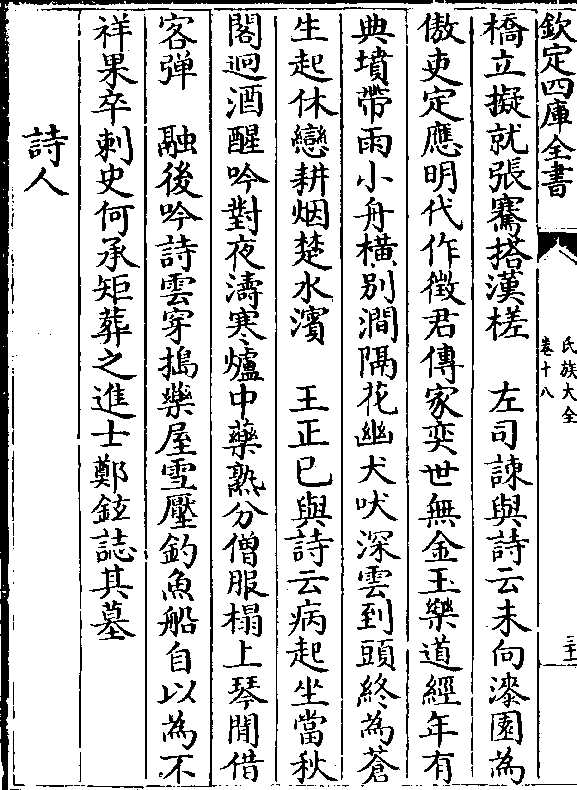 欽定四庫全書
氏族大全
卷十八
三十一
橋立擬就張騫搭漢槎　左司諫與詩云未向漆園為
傲吏定應明代作徵君傳家奕世無金玉樂道經年有
典墳帶雨小舟橫別澗隔花幽犬吠深雲到頭終為蒼
生起休戀耕烟楚水濱　王正已與詩云病起坐當秋
閣迥酒醒吟對夜濤寒爐中藥熟分僧服榻上琴閒借
客弹　融後吟詩雲穿搗藥屋雪壓釣魚船自以為不
祥果卒刺史何承矩葬之進士鄭鉉誌其墓
詩人